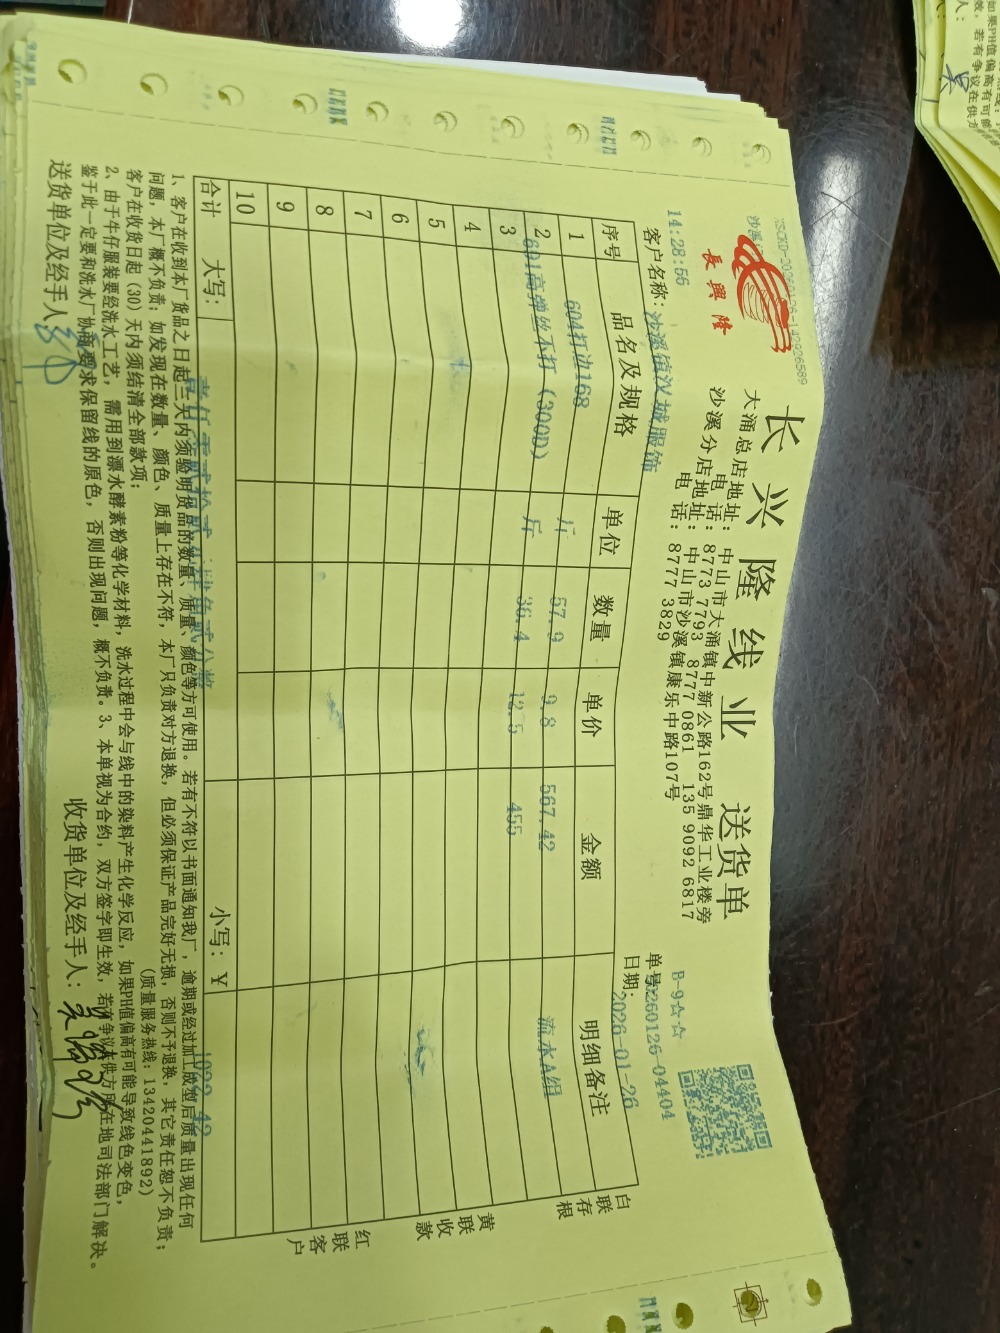 長興隆
长兴隆线业 送货单
大涌总店地址：中山市大涌镇中新公路162号鼎华工业楼旁
电话：8773 7793 8777 0861 135 9092 6817
沙溪分店地址：中山市沙溪镇康乐中路107号
电话：8777 3829
B-9☆☆
14:28:56
单号：20260126-04404
客户名称：沙溪镇汉城服饰
日期：2026-01-26
序号 品名及规格 单位 数量 单价 金额 明细备注
1 604打边168 斤 57.9 9.8 567.42 流水A组
2 601高弹丝不打（300D） 斤 36.4 12.5 455
3
4
5
6
7
8
9
10
合计 大写： 小写：￥ 1022.42
白联存根
黄联收款
红联客户
1、客户在收到本厂货品之日起三天内须验明货品的数量、质量、颜色等方可使用。若有不符以书面通知我厂，逾期或经过加工成型后质量出现任何
问题，本厂概不负责；如发现在数量、颜色、质量上存在不符，本厂只负责对方退换，但必须保证产品完好无损，否则不予退换，其它责任恕不负责；
客户在收货日起（30）天内须结清全部款项；
（质量服务热线：13420441892）
2、由于牛仔服装要经洗水工艺，需用到漂水酵素粉等化学材料，洗水过程中会与线中的染料产生化学反应，如果PH值偏高有可能导致线色变色，
鉴于此一定要和洗水厂协商要求保留线的原色，否则出现问题，概不负责。3、本单视为合约，双方签字即生效，若有争议在供方所在地司法部门解决。
送货单位及经手人：
收货单位及经手人：
如果PH值偏高有可能
效，若有争议在供方
人：